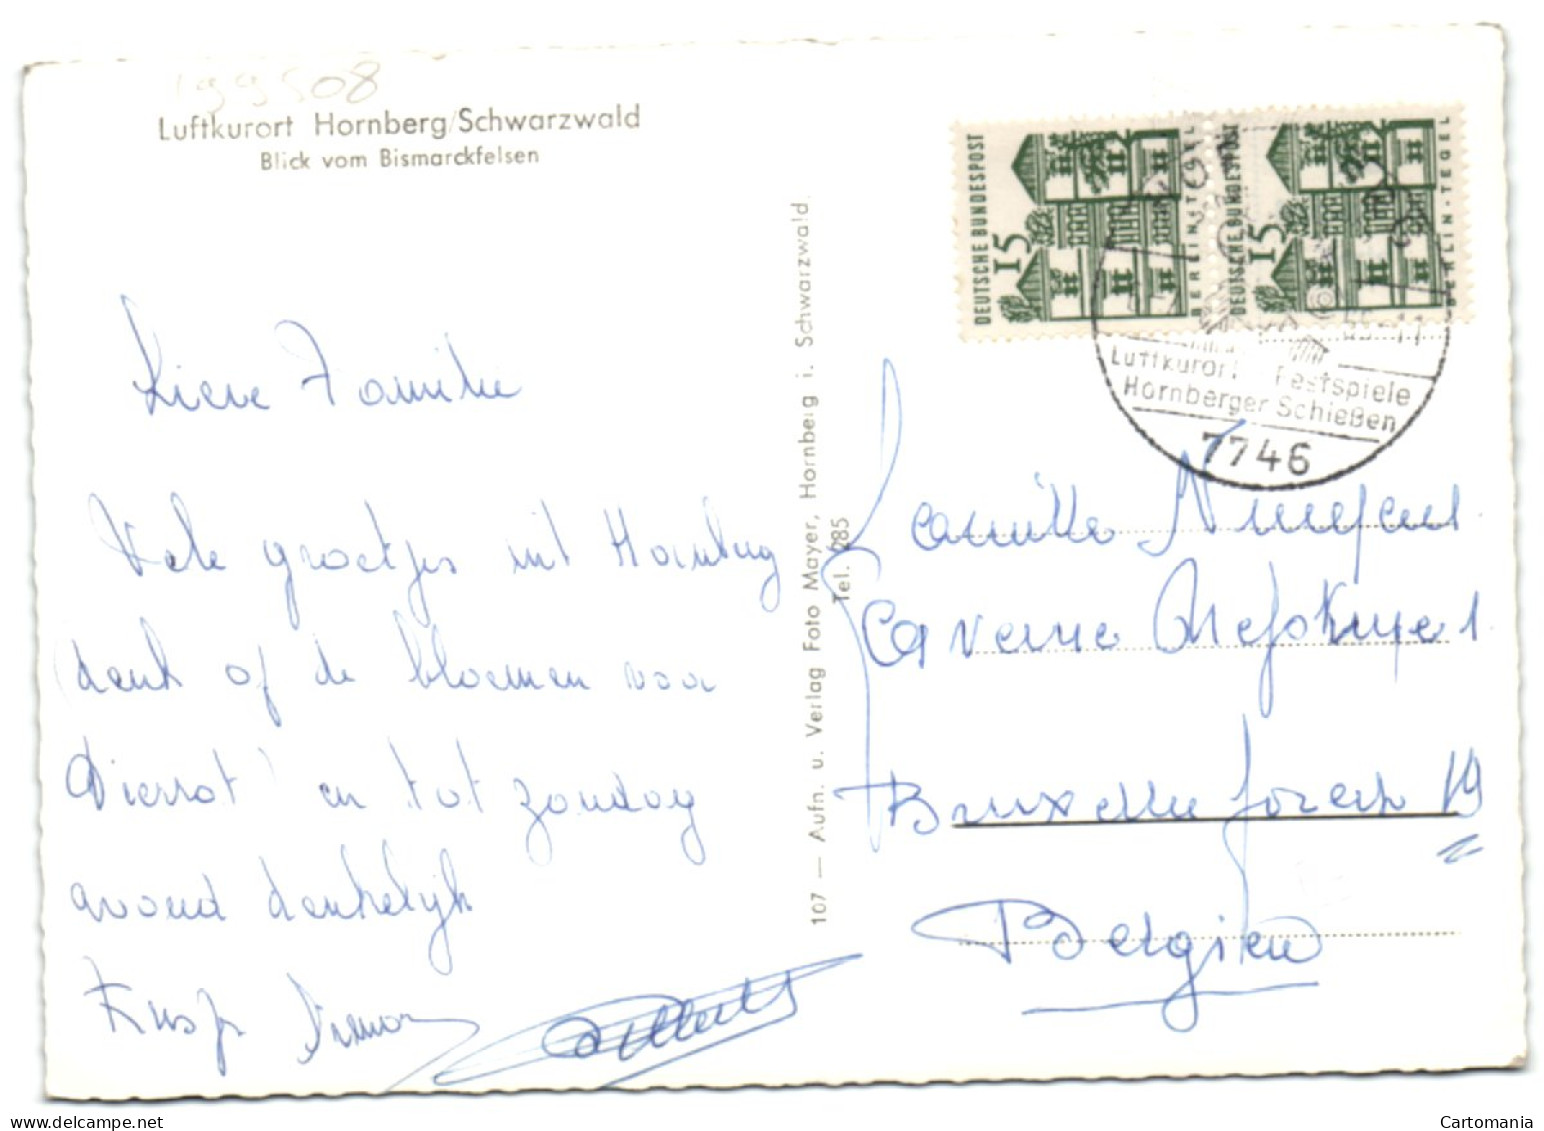 199508
Luftkurort Hornberg/Schwarzwald
Blick vom Bismarckfelsen
Lieve Familie
Vele groetjes uit Hornberg
denk of de bloemen voor
Pierrot en tot zondag
avond denkelijk
Kusjes
107 — Aufn. u. Verlag Foto Mayer, Hornberg i. Schwarzwald.
Tel. 285
DEUTSCHE BUNDESPOST
15
BERLIN-TEGEL
DEUTSCHE BUNDESPOST
15
BERLIN-TEGEL
Luftkurort Festspiele
Hornberger Schießen
7746
Camille
Taverne
Bruxelles forest 19
Belgien
www.delcampe.net
Cartomania